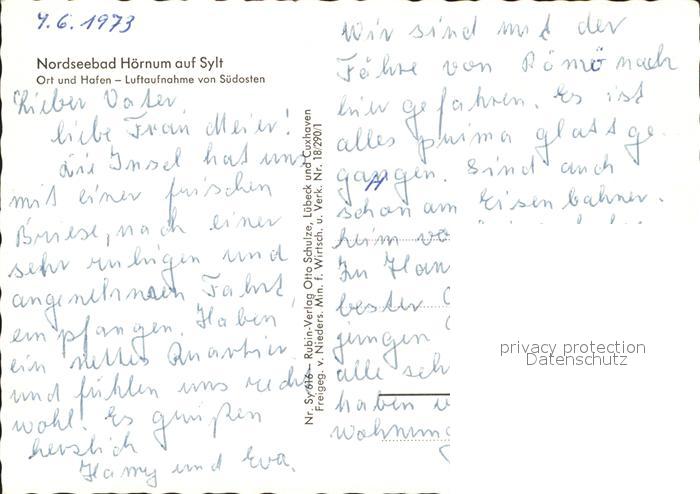 4.6.1973
Nordseebad Hörnum auf Sylt
Ort und Hafen – Luftaufnahme von Südosten
Lieber Vater,
liebe Frau Meier!
Die Insel hat uns
mit einer frischen
Briese, nach einer
sehr ruhigen und
angenehmen Fahrt,
empfangen. Haben
ein nettes Quartier
und fühlen uns recht
wohl. Es grüßen
herzlich
und Eva.
Nr. Sy 616 – Rubin-Verlag Otto Schulze, Lübeck und Cuxhaven
Freigeg. v. Nieders. Min. f. Wirtsch. u. Verk. Nr. 18/290/1
Wir sind mit der
Fähre von Römö nach
hier gefahren. Es ist
alles prima glatt ge-
gangen. Sind auch
schon am Eisenbahner-
heim
In
bester
jungen
alle
haben
wohnung
privacy protection
Datenschutz